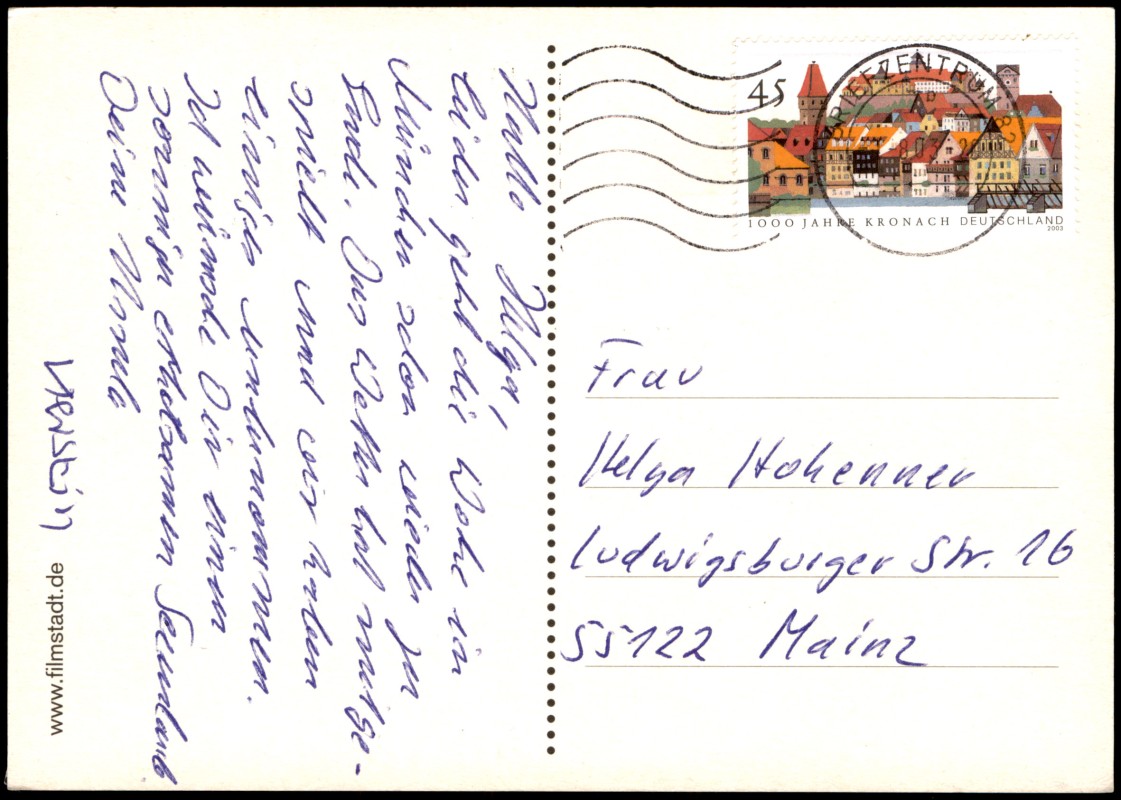 Hallo Helga,
leider geht die Woche in
München schon wieder zu
Ende. Das Wetter hat mitge-
spielt und wir haben
einiges unternommen.
Ich wünsche Dir einen
sonnigen erholsamen
Deine Ursula
www.filmstadt.de
45
1000 JAHRE KRONACH DEUTSCHLAND
2003
BRIEFZENTRUM
Frau
Helga Hohenner
Ludwigsburger Str. 16
55122 Mainz